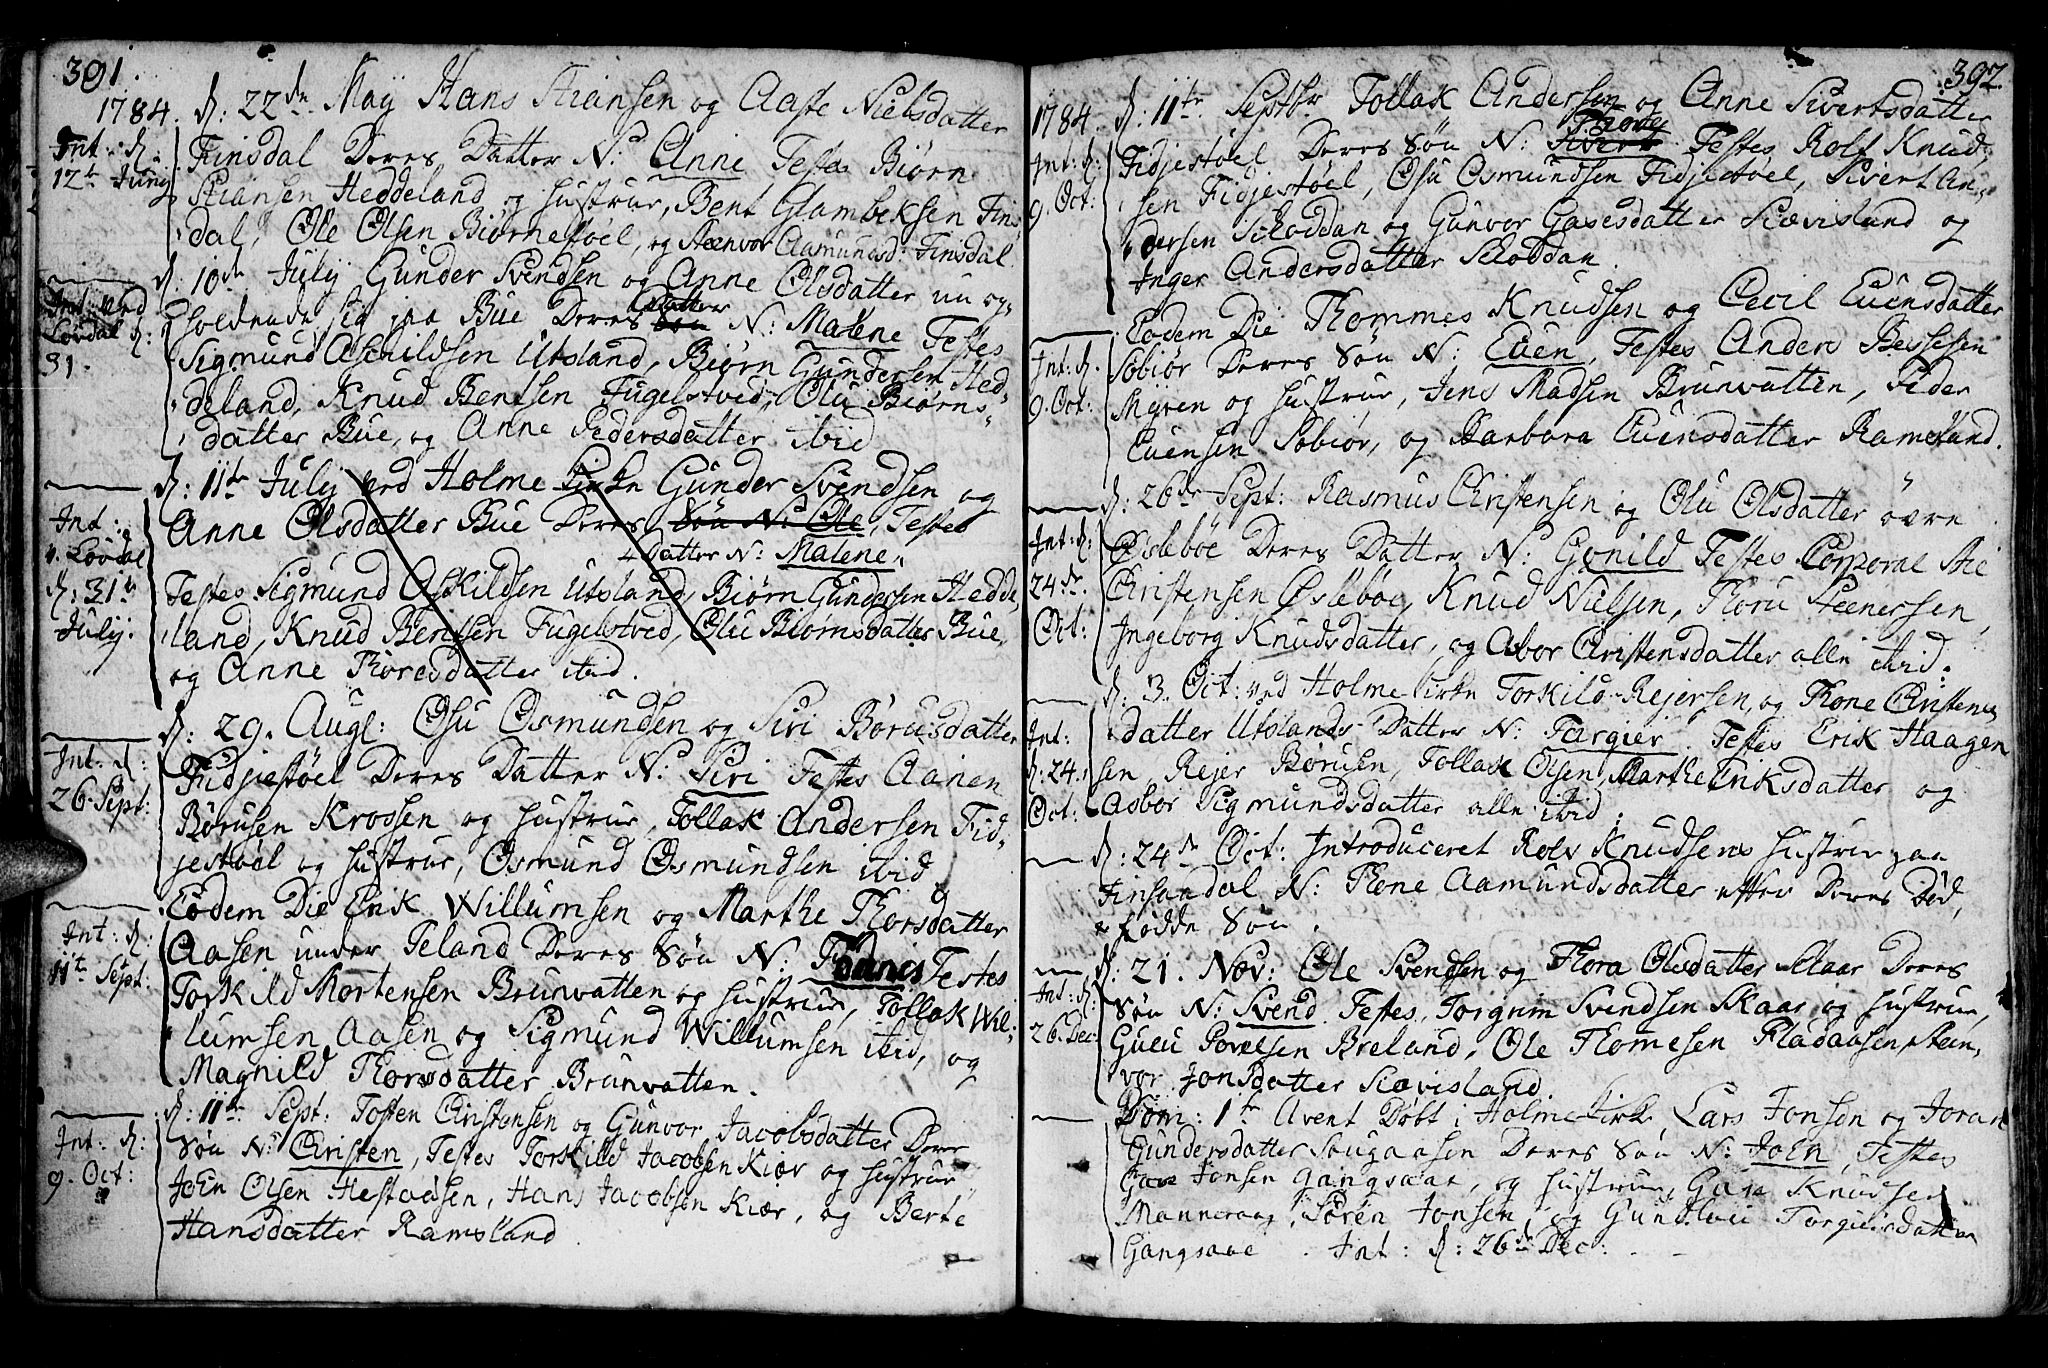 391.
1784. d: 22de Maÿ Hans Stiansen og Aaste Nielsdatter
Int: d: 12te Junÿ
Finsdal Deres Datter N: Anne Testes Biørn
Stiansen Heddeland og hustrue, Bent Glambeksen Fins,
dal, Ole Olsen Biørnestøel, og Steenvor Aamundsd: Finsdal.
d. 10de Julÿ Gunder Svendsen og Anne Olsdatter nu op,
Int: ved Løvdal d: 31.
holdende sig paa Bue Deres Søn Datter N: Malene Testes
Sigmund Aschildsen Utsland, Biørn Gundersen Hed,
deland, Knud Bentsen Fugelstved, Olu Biørns,
datter Bue, og Anne Pedersdatter ibid
d: 11te Julÿ ved Holme Kirke Gunder Svendsen og
Int: v. Løvdal d: 31te Julÿ.
Anne Olsdatter Bue Deres Søn N: Ole, Testes
Datter N: Malene
Testes Sigmund Askildsen Utsland, Biørn Gundersen Hedde,
land, Knud Bentsen Fugelstved, Olu Biørnsdatter Bue,
og Anne Thoresdatter ibid.
d: 29. Augl: Osu Osmundsen og Siri Børusdatter
Int: d: 26. Sept:
Fidjestøel Deres Datter N: Siri Testes Aanen
Børusen Krossen og hustrue, Tollak Andersen Fid,
jestøel og hustrue, Osmund Osmundsen ibid
Eodem Die Erik Willumsen og Marthe Thorsdatter
Int: d: 11te Sept.
Aasen under Teland Deres Søn N: Testes
Torkild Mortensen Brunvatten og hustrue, Tollak Wil,
lumsen Aasen og Sigmund Willumsen ibid, og
Magnild Thorsdatter Brunvatten.
d: 11te Sept: Tosten Christensen og Gunvor Jacobsdatter Deres
Int: d: 9. Oct:
Søn N: Christen, Testes Torkild Jacobsen Kiær og hustrue
Joen Olsen Hestaasen, Hans Jacobsen Kiær, og Berte
Hansdatter Ramsland
392.
1784. d: 11te Septbr Tollak Andersen og Anne Sivertsdatter
Int: d: 9. Oct:
Fidjestøel Deres Søn N: Sivert Testes Rolf Knud,
sen Fidjestøel, Osu Osmundsen Fidjestøel, Sivert An,
dersen Skoddan og Gunvor Gasesdatter Skevisland og
Inger Andersdatter Skoddan.
Eodem Die Thommes Knudsen og Cecil Euensdatter
Int: d. 9. Oct:
Søbiør Deres Søn N: Euen, Testes Anders Bessesen
Mÿren og hustrue, Jens Madsen Brunvatten, Peder
Euensen Søbiør, og Barbara Euensdatter Ramsland.
d: 26de Sept: Rasmus Christensen og Olu Olsdatter øvre
Int: d: 24de Oct:
Øslebøe Deres Datter N: Gonild Testes Corporal Ole
Christensen Øslebøe, Knud Nielsen, Thoru Steenersen,
Ingeborg Knudsdatter, og Asbor Christensdatter alle ibid.
d. 3. Oct: ved Holme Kirke Torkild Rejersen, og Thone Christens
Int: d: 24. Oct:
datter Utslands Datter N: Targier. Testes Erik Haagen
sen, Rejer Børusen, Tollak Olsen, Marthe Eriksdatter og
Asbor Sigmundsdatter alle ibid.
d: 24de Oct: Introduceret Rolv Knudsens hustrue paa
Finsandal N: Thone Aamundsdatter efter Deres Død,
fødde Søn.
d: 21. Nov: Ole Svendsen og Thora Olsdatter Skaar Deres
Int: d: 26. Dec:
Søn N: Svend Testes, Torgrim Svendsen Skaar og hustrue,
Gueu Povelsen Breland, Ole Thomesen Fladaasen, Steen,
vor Jonsdatter Skevisland
Dom: 1te Avent Døbt i Holme Kirke Lars Jonsen og Joran
Gundersdatter Sougaasen Deres Søn N: Joen Testes
Gase Jonsen Gangsaae, og hustrue, Gase Knudsen
Manneraag, Søren Jonsen, og Gundlou Torgiersdatter
Gangsaae. Int: d: 26de Dec: